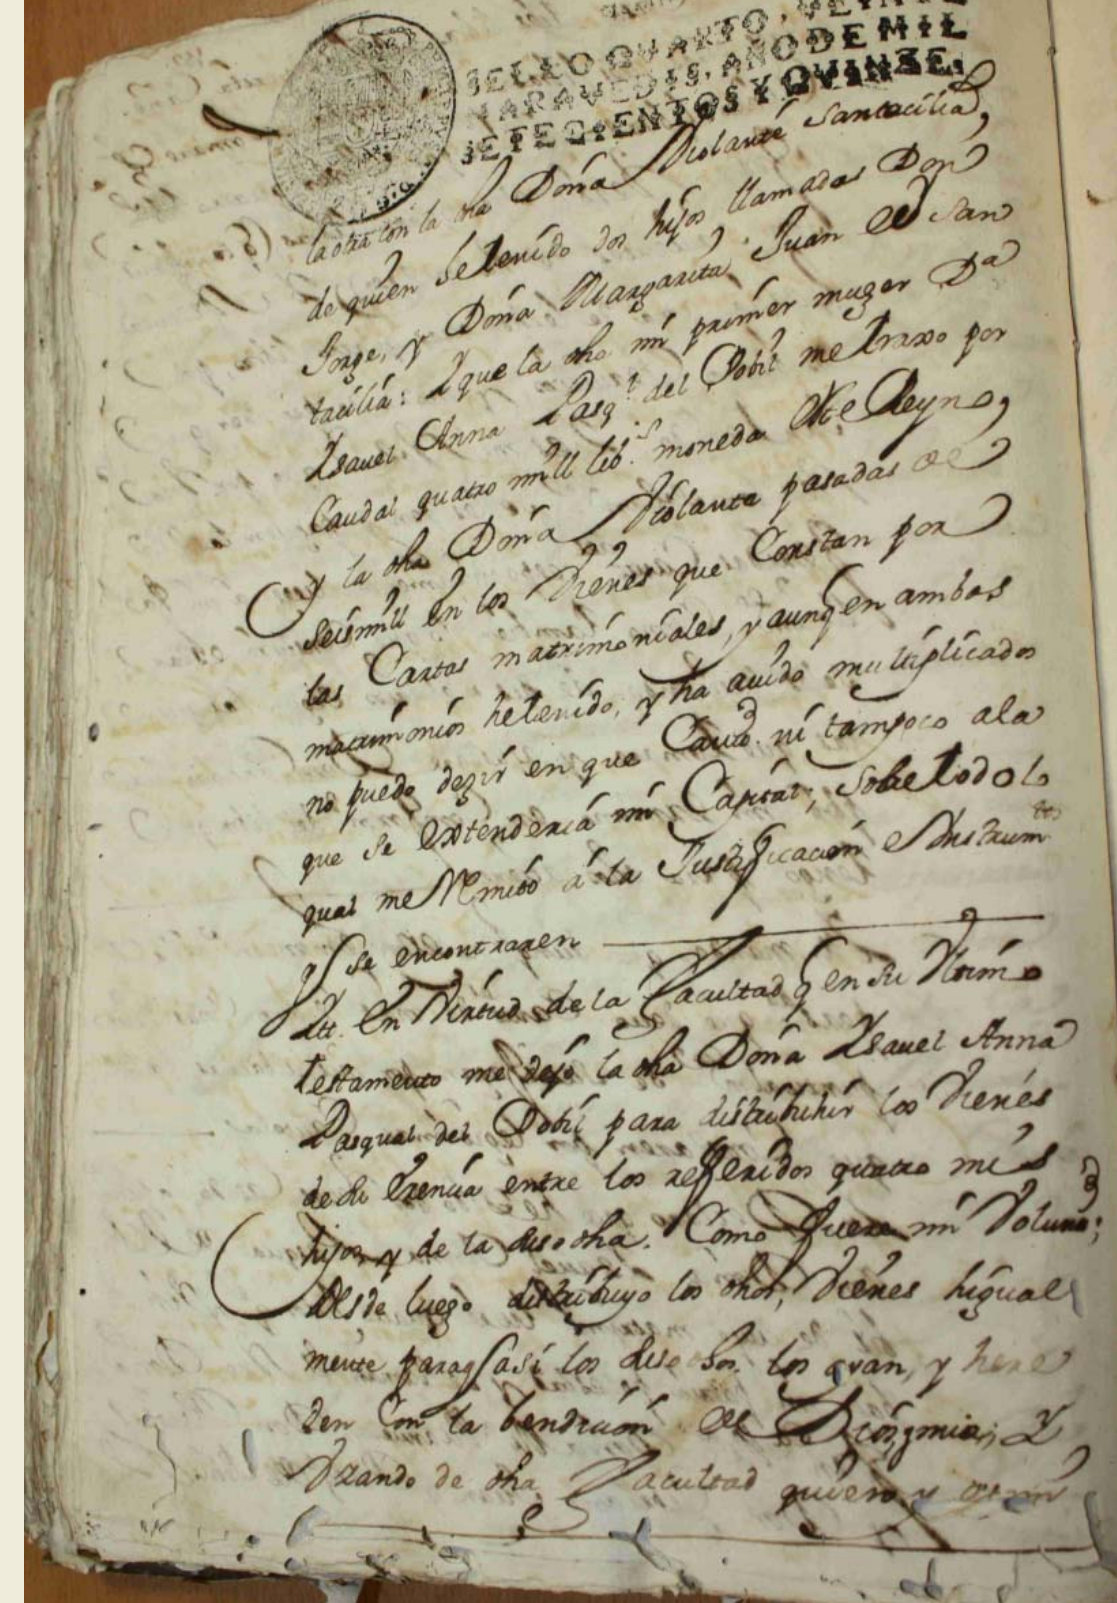 SELLO QVARTO, VEINTE
MARAVEDIS, AÑO DE MIL
SETECIENTOS Y QVINZE.
la otra con la dha Doña Violante Santacilia,
de quien he tenido dos hijos llamados Don
Jorge, y Doña Margarita Juan de San
tacilia: Y que la dha mi primer muger Dª
Ysauel Anna Pasql del Pobil me traxo por
Caudal quatro mill lib.s moneda deste Reyno,
y la dha Doña Violante pasadas de
seis mill en los Vienes que Constan por
las Cartas matrimoniales, y aunq en ambos
matrimonios he tenido, y ha auido multiplicados
no puedo dezir en que Cantd. ni tampoco a la
que se extenderia mi Capital; sobre todo lo
qual me Remito á la Justificacion e Instrumtos
q se encontraren
Ytt. En Virtud de la Facultad q en su Vltimo
testamento me dejo la dha Doña Ysauel Anna
Pasqual del Pobil para distribuhir los Vienes
de su Erencia entre los refferidos quatro mis
hijos, y de la suso dha. Como fuere mi Volund;
desde luego distribuyo los dhos Vienes higual
mente para q asi los suso dhos los ayan, y here
den Con la bendicion de Dios, y mia; Y
Vzando de dha Facultad quiero y es mi